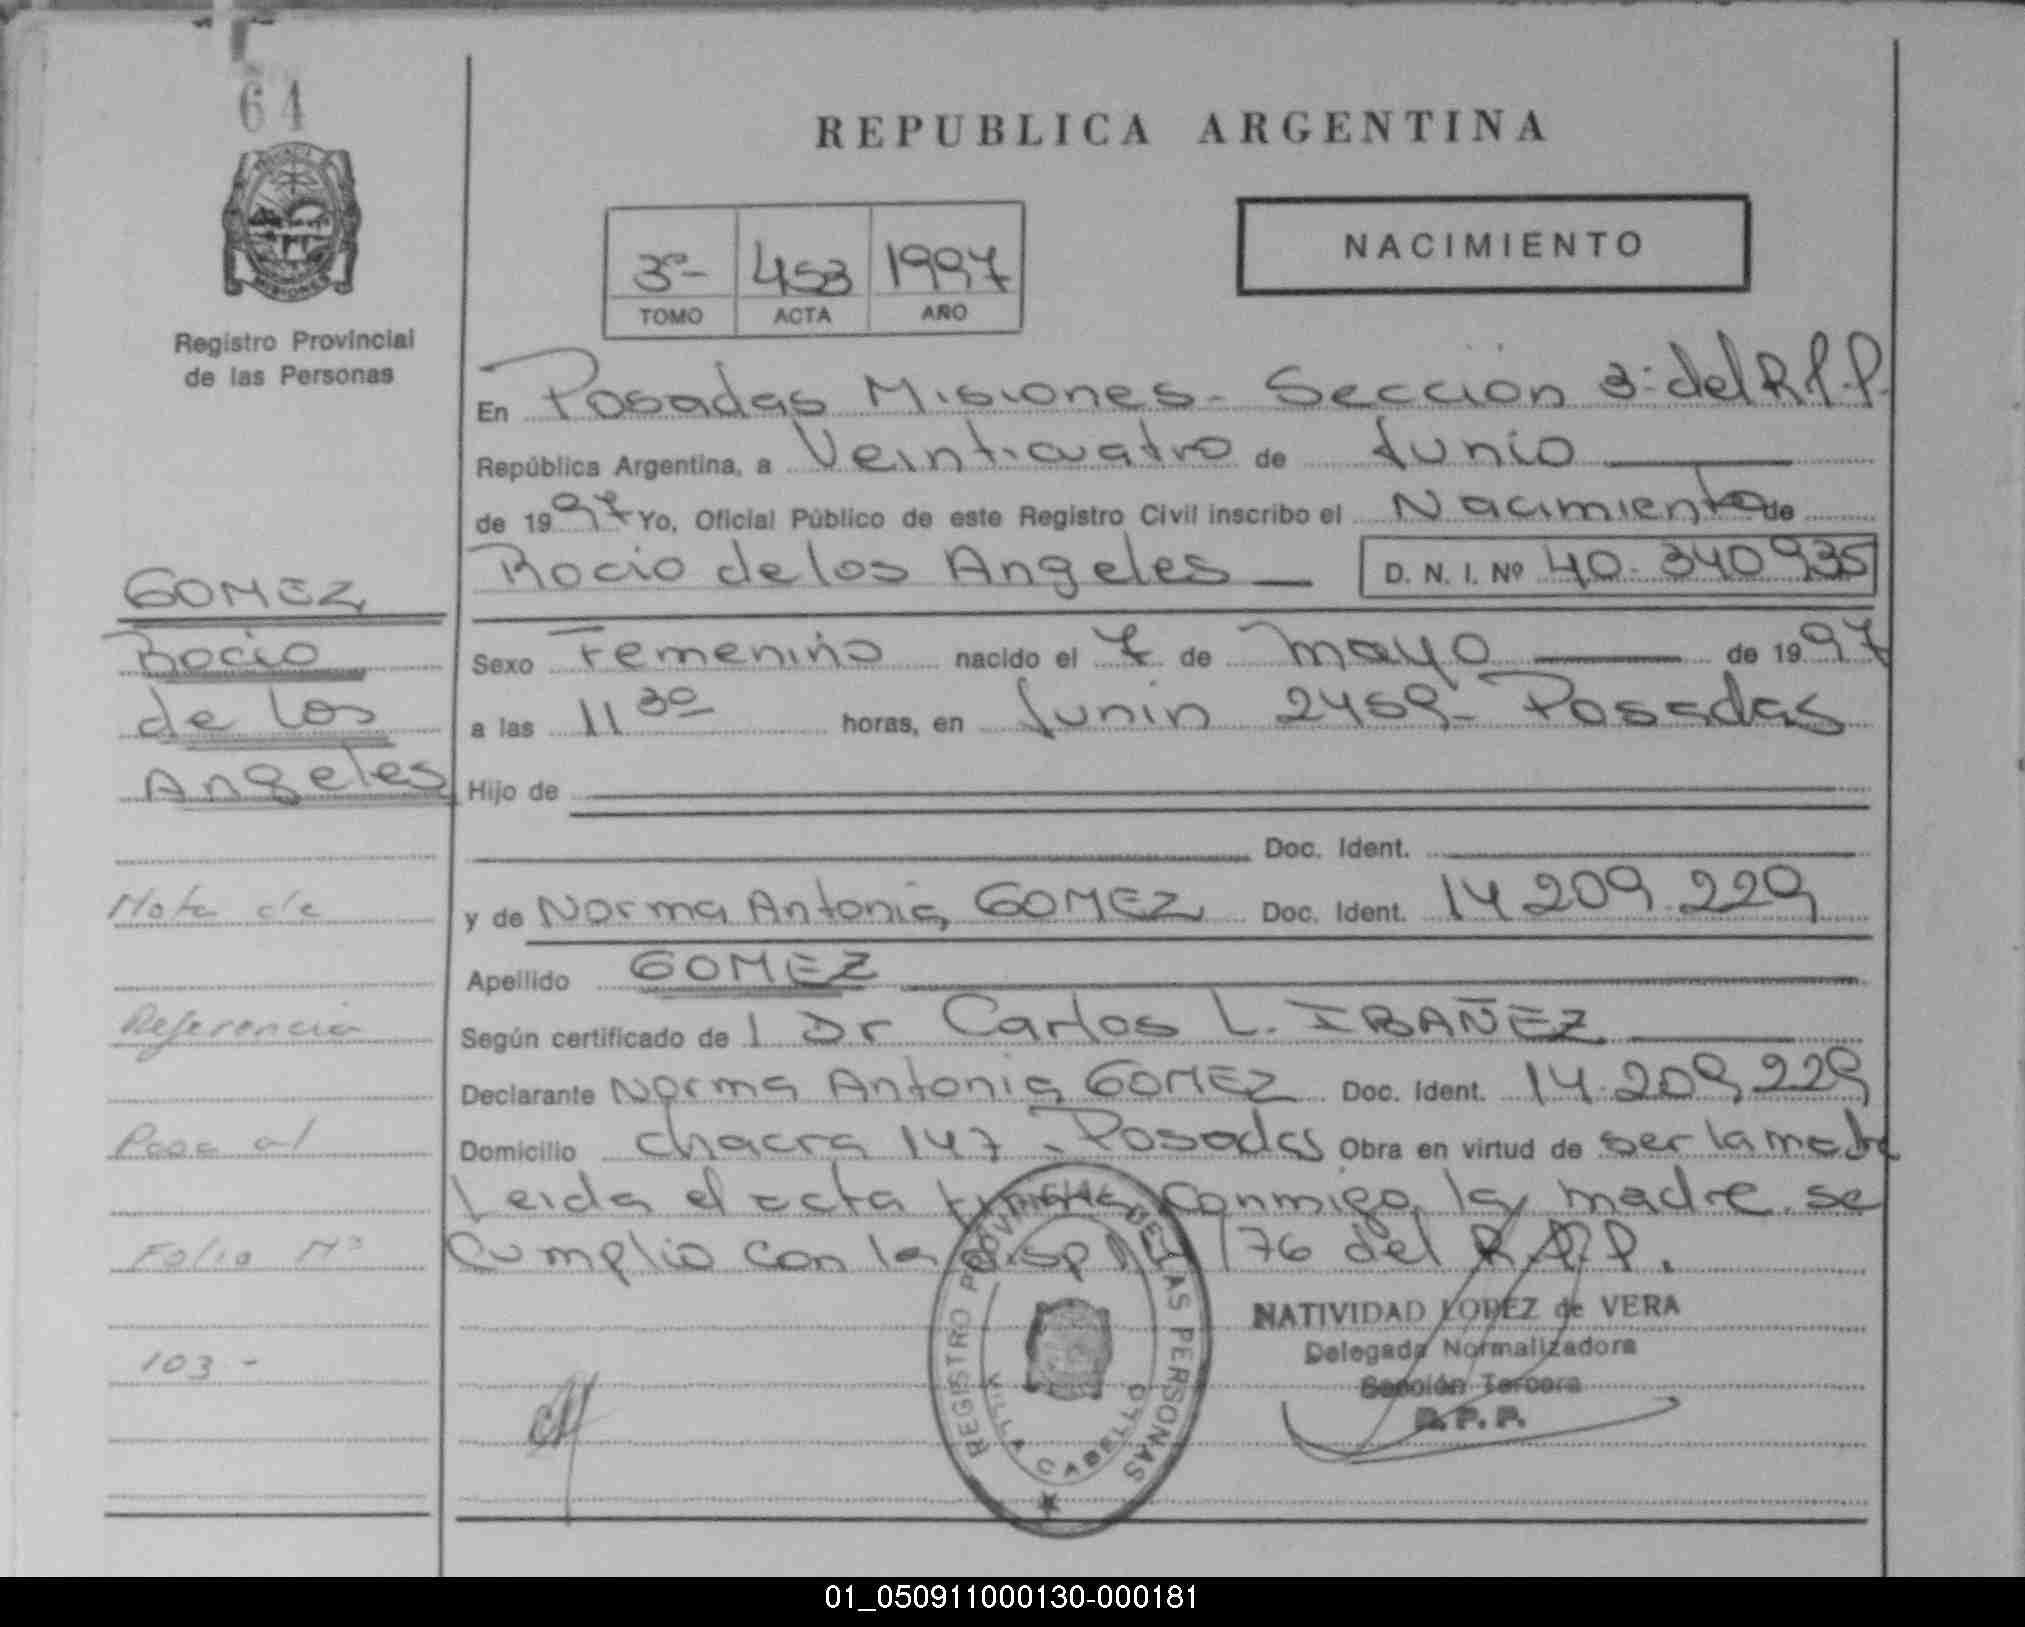 64
REPUBLICA ARGENTINA
NACIMIENTO
3º- 453 1997
TOMO ACTA AÑO
MISIONES
Registro Provincial
de las Personas
En Posadas Misiones. Sección 3ª del R.P.P.
República Argentina, a Veinticuatro de Junio
de 1997 Yo, Oficial Público de este Registro Civil inscribo el Nacimiento de
Rocio de los Angeles D. N. I. Nº 40.340935
GOMEZ
Rocio
de los
Angeles
Sexo Femenino nacido el 7 de mayo de 1997
a las 11 30 horas, en Junin 2459- Posadas
Hijo de
Doc. Ident.
y de Norma Antonia GOMEZ Doc. Ident. 14.209.229
Apellido GOMEZ
Según certificado de l Dr Carlos L. IBAÑEZ
Declarante Norma Antonia GOMEZ Doc. Ident. 14.209.229
Domicilio chacra 147 - Posadas Obra en virtud de ser la madre
Leida el acta firma conmigo la madre. se
Cumplio con la disp 176 del R.P.P.
Nota de
Referencia
Pasa al
Folio Nº
103 -
REGISTRO PROVINCIAL DE LAS PERSONAS
VILLA CABELLO
NATIVIDAD LOPEZ de VERA
Delegada Normalizadora
Sección Tercera
R.P.P.
01_050911000130-000181